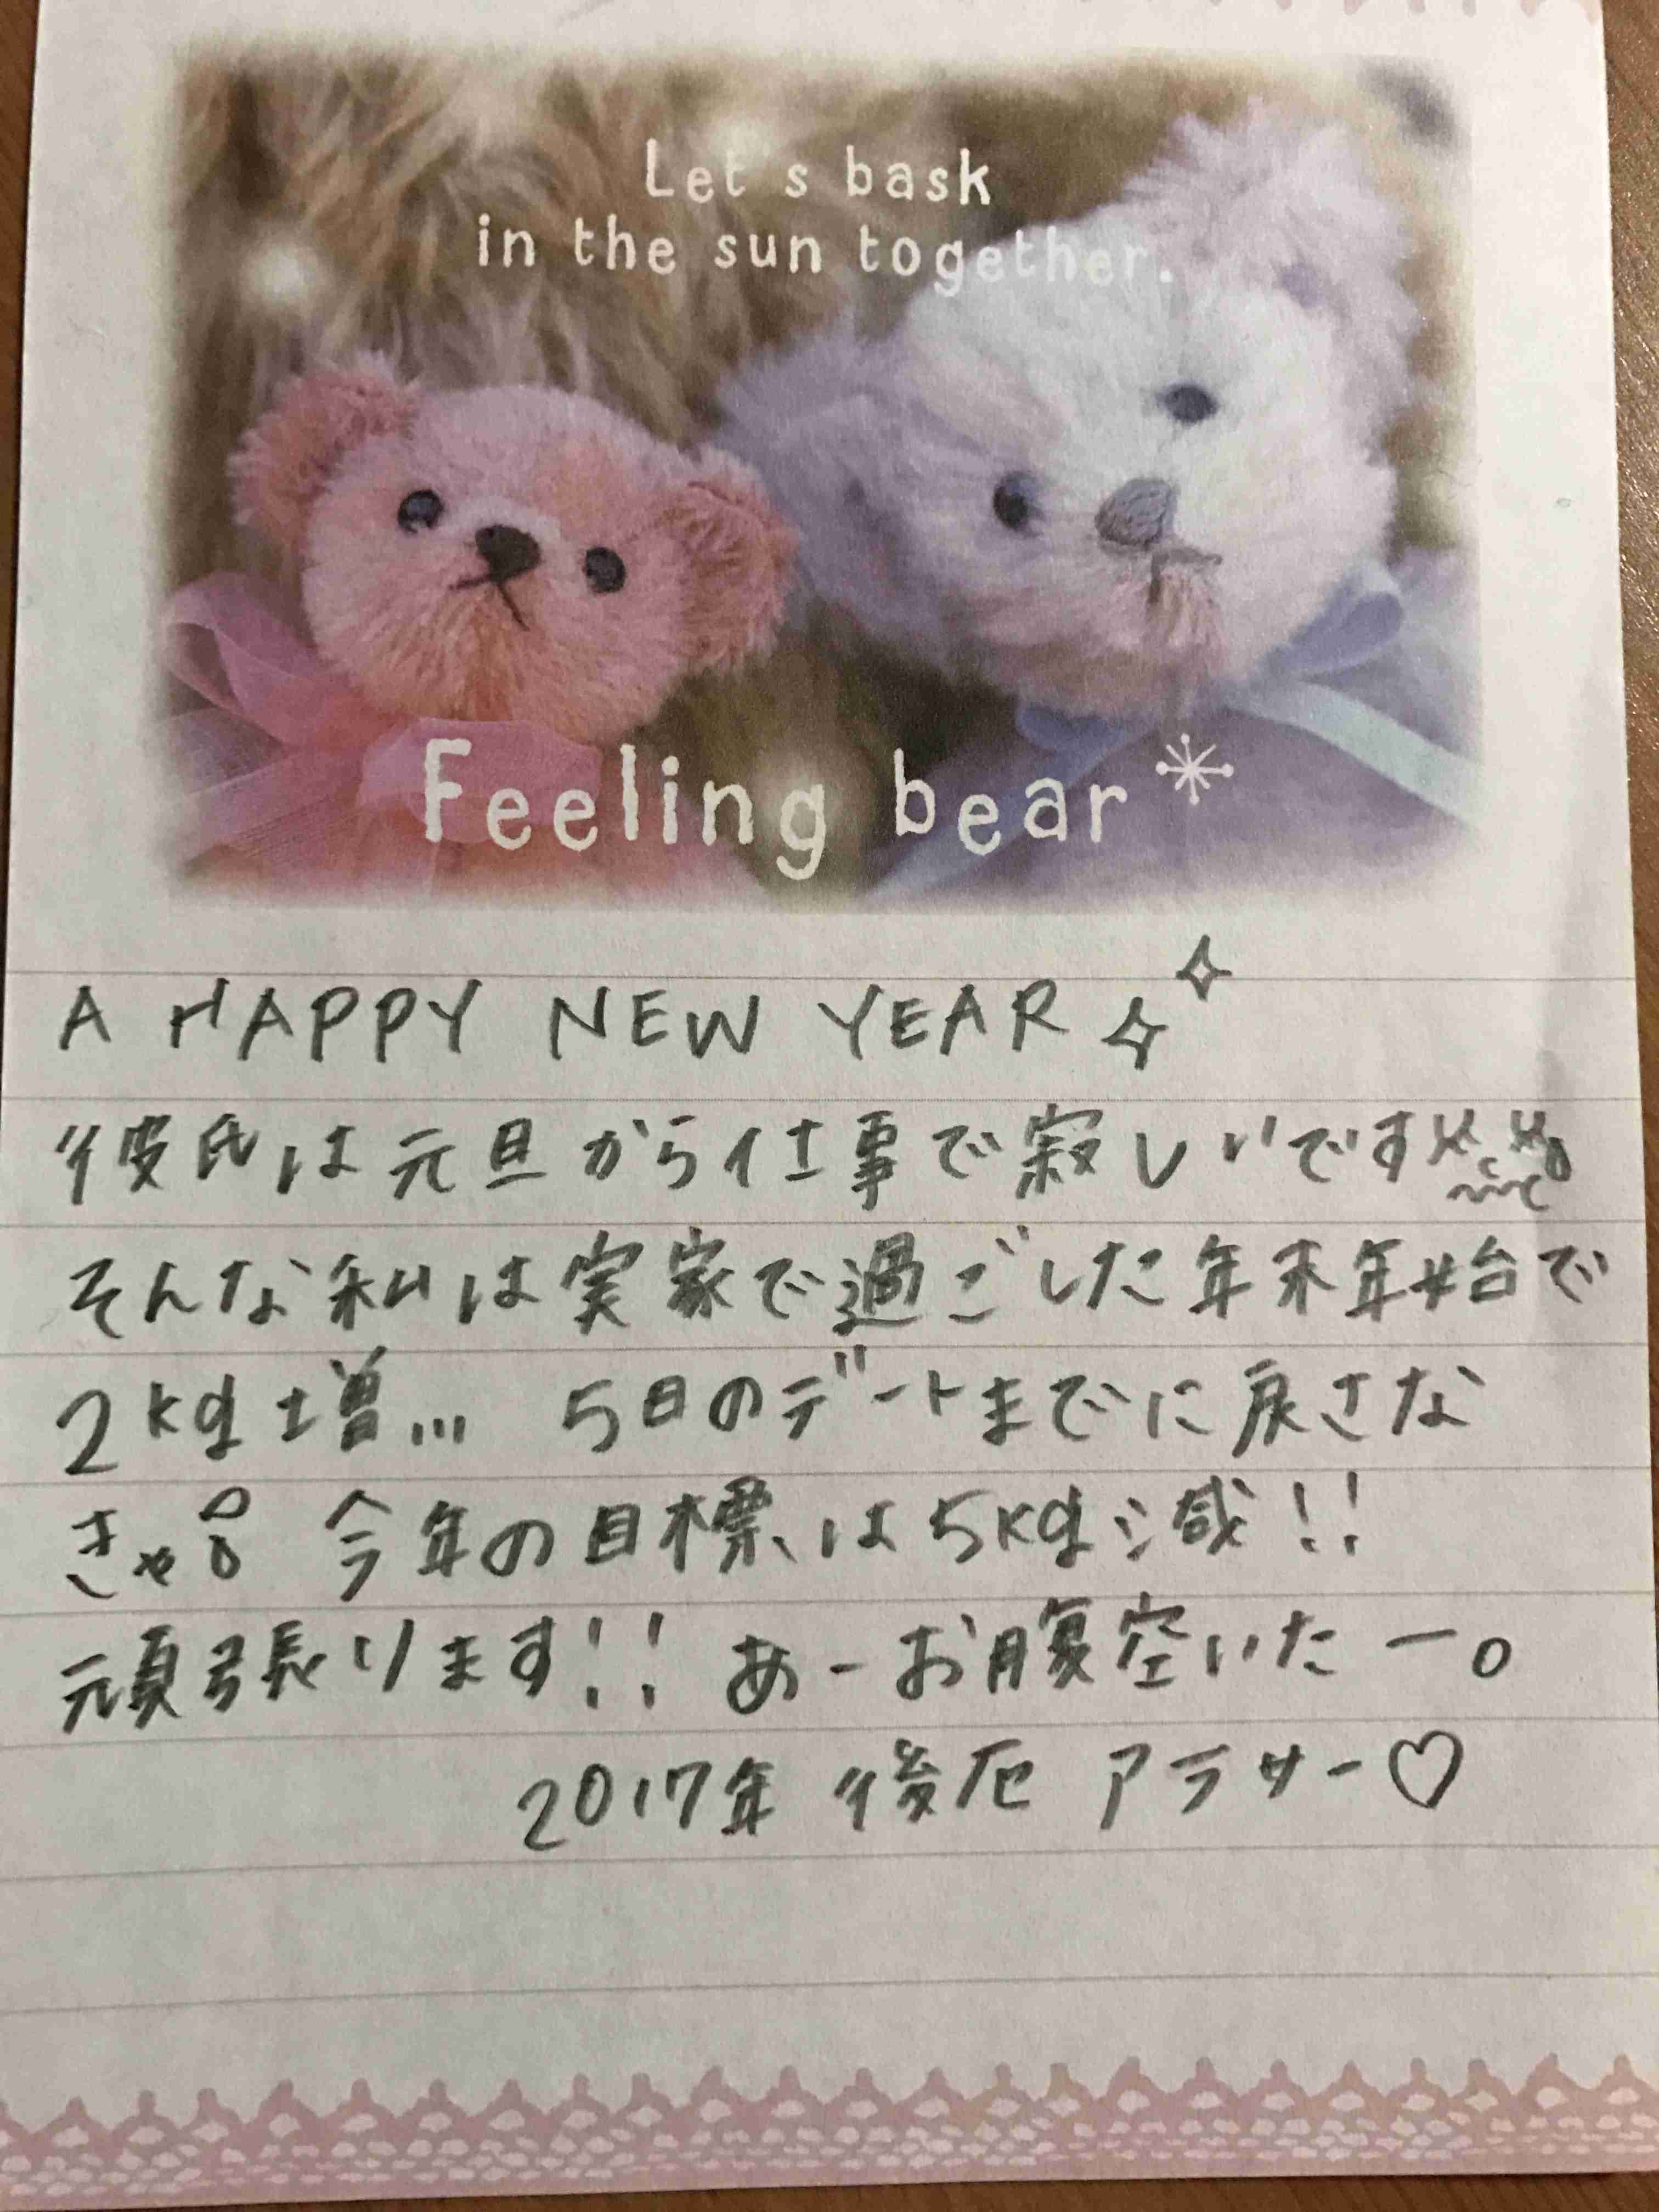 Let's bask
in the sun together.
Feeling bear*
A HAPPY NEW YEAR
彼氏は元旦から仕事で寂しいです
そんな私は実家で過ごした年末年始で
2kg増... 5日のデートまでに戻さな
きゃ 今年の目標は5kg減!!
頑張ります!! あーお腹空いたー。
2017年 後厄 アラサー♡